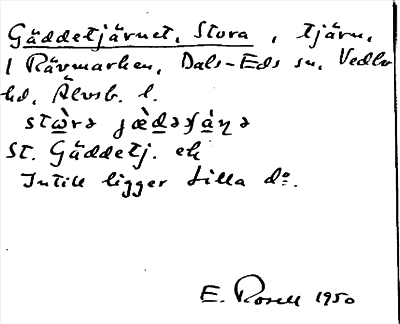 Gäddetjärnet, Stora, tjärn,
i Rävmarken, Dals-Eds sn, Vedbo
hd, Älvsb. l.
St. Gäddetj. ek
Intill ligger Lilla do.
E. Rosell 1950